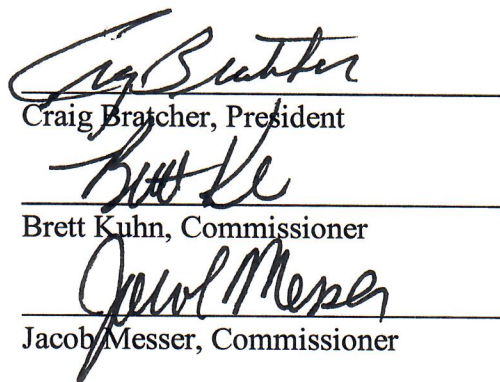 Craig Bratcher
Craig Bratcher, President
Brett Ku
Brett Kuhn, Commissioner
Jacob Messer
Jacob Messer, Commissioner